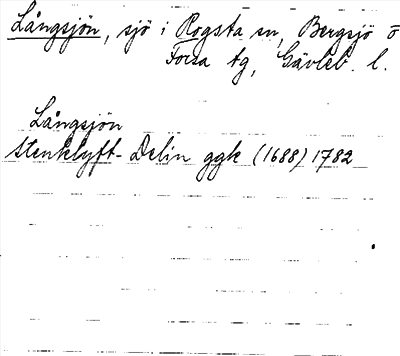 Långsjön, sjö i Rogsta sn, Bergsjö o
Forsa tg, Gävleb. l.
Långsjön
Stenklyft-Delin ggk (1688) 1782